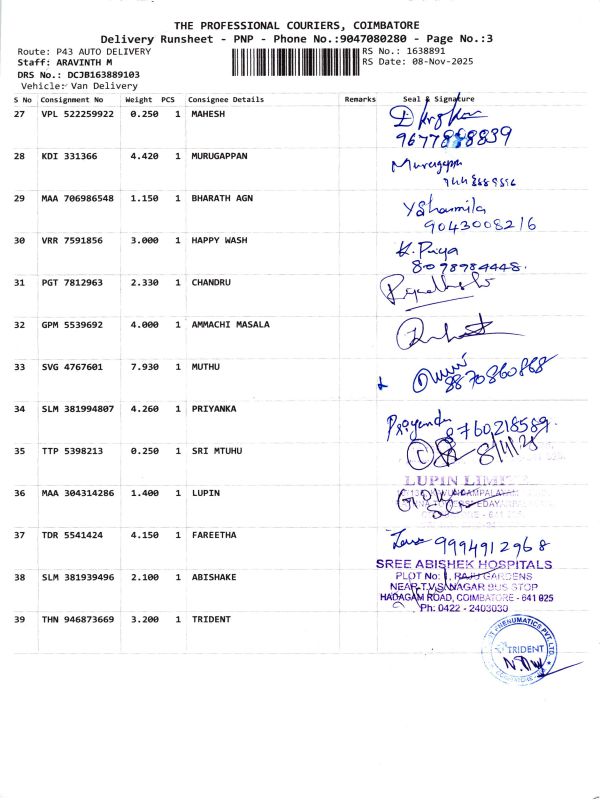 THE PROFESSIONAL COURIERS, COIMBATORE
Delivery Runsheet - PNP - Phone No.:9047080280 - Page No.:3
Route: P43 AUTO DELIVERY RS No.: 1638891
Staff: ARAVINTH M RS Date: 08-Nov-2025
DRS No.: DCJB163889103
Vehicle: Van Delivery
S No Consignment No Weight PCS Consignee Details Remarks Seal & Signature
27 VPL 522259922 0.250 1 MAHESH
28 KDI 331366 4.420 1 MURUGAPPAN Murugappa
29 MAA 706986548 1.150 1 BHARATH AGN Y Sharmila
9043008216
30 VRR 7591856 3.000 1 HAPPY WASH K. Priya
8078784448.
31 PGT 7812963 2.330 1 CHANDRU
32 GPM 5539692 4.000 1 AMMACHI MASALA
33 SVG 4767601 7.930 1 MUTHU
8870860868
34 SLM 381994807 4.260 1 PRIYANKA
8760218589.
35 TTP 5398213 0.250 1 SRI MTUHU 8/11/25
36 MAA 304314286 1.400 1 LUPIN LUPIN LIMITED
37 TDR 5541424 4.150 1 FAREETHA 9994912968
38 SLM 381939496 2.100 1 ABISHAKE SREE ABISHEK HOSPITALS
PLOT No: 1, RAJU GARDENS
NEAR T.V.S. NAGAR BUS STOP
HADAGAM ROAD, COIMBATORE - 641 025
Ph: 0422 - 2403030
39 THN 946873669 3.200 1 TRIDENT TRIDENT